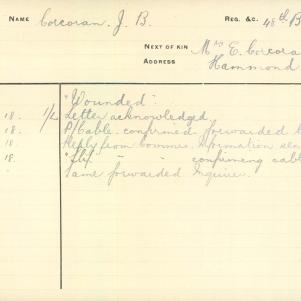 NAME Corcoran. J. B. REG. &C. 48th B
NEXT OF KIN Mrs E. Corcora
ADDRESS Hammond
"Wounded".
18. 1/2 Letter acknowledged
18. Cable. confirmed forwarded
18. Reply from Commr. information sen
18. " " confirming cabl
" Same forwarded Inquirer.